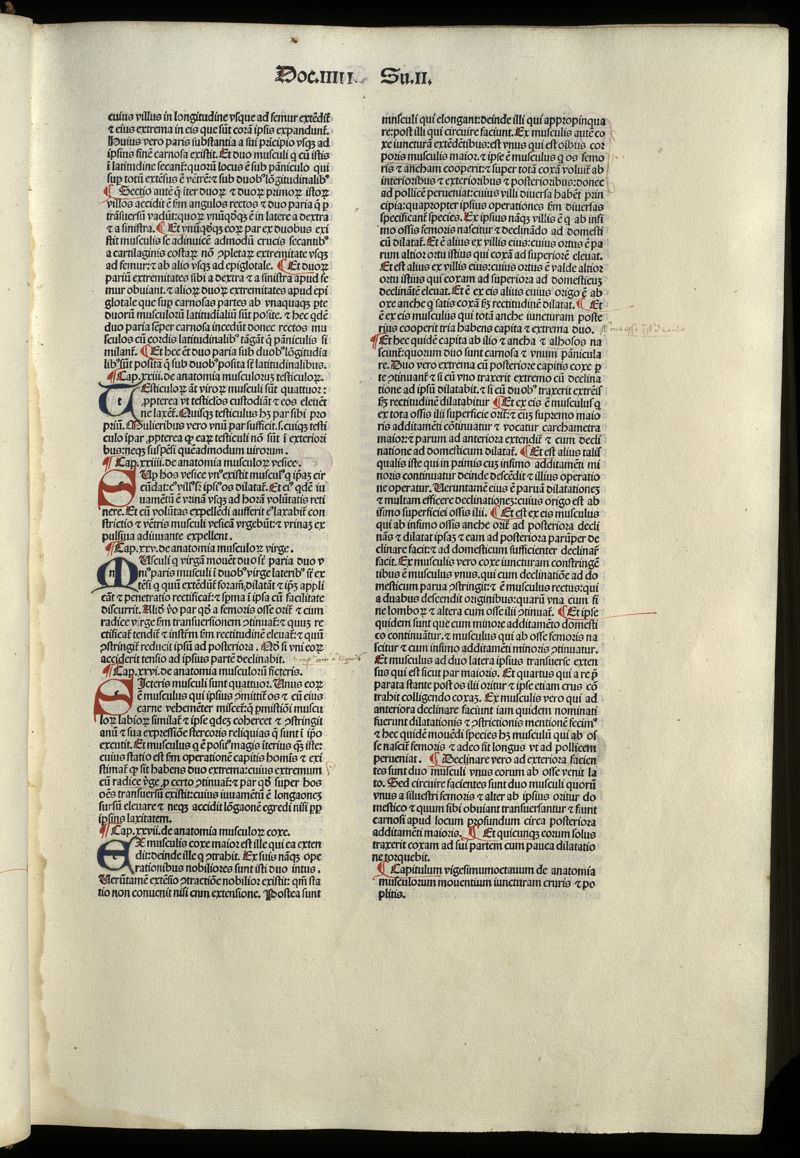 Doc.IIII. Su.II.
cuius villus in longitudine vsqʒ ad femur extēdit̄
⁊ eius extrema in eis que sūt corā ipsis expandunt̄.
Huius vero paris substantia a sui prīcipio vsqʒ ad
ipsius finē carnosa existit. Et duo musculi qͥ cū istis
ī latitudine secant̄: quorū locus ē sub pāniculo qui
¶ Sectio autē q̄ iter duoꝝ ⁊ duoꝝ primoꝝ istoꝝ
villos accidit ē fm̄ angulos rectos ⁊ duo paria q̄ ꝑ
trāsuersū vadūt: quoꝝ vnūqdqʒ ē in latere a dextra
⁊ a sinistra. ¶ Et vnūqdqʒ eoꝝ par ex duobus exi
stit musculis se adinuicē admodū crucis secantibꝰ
a cartilaginis costaꝝ nō ꝯpletaꝝ extremitate vsqʒ
ad femur: ⁊ ab alio vsqʒ ad epiglotale. ¶ Et duoꝝ
pariū extremitates sibi a dextra ⁊ a sinistra apud fe
mur obuiant. ⁊ alioꝝ duoꝝ extremitates apud epi
glotale que suꝑ carnosas partes ab vnaquaqʒ ꝑte
duorū musculorū latitudialiū sūt posite. ⁊ hec qdē
duo paria sēꝑ carnosa incedūt donec rectos mu
sculos cū cordis latitudinalibꝰ tāgāt q̄ paniculis si
milant̄. ¶ Et hec ēt duo paria sub duobꝰ lōgitudia
libꝰ sūt posita q̄ sub duobꝰ posita st̄ latitudinalibus.
¶ Cap.xxiii. de anatomia musculorum testiculoꝝ.
Testiculoꝝ āt viroꝝ musculi sūt quattuor:
ꝓpterea vt testicl̄os custodiāt ⁊ eos eleuēt
ne laxēt. Quisqʒ testiculus hʒ par sibi pro
priū. Mulieribus vero vnū par sufficit. s. cuiqʒ testi
culo īpar, ꝓpterea qꝫ eaꝝ testiculi nō sūt ī exteriori
bus: neqʒ suspēsi quēadmodum uirorum.
¶ Cap.xxiiii. de anatomia musculoꝝ vesice.
Sup hos vesice vnꝰ existit musculꝰ q̄ ip̄aʒ cir
uamētū ē vrinā vsqʒ ad horā volūtatis reti
nere. Et cū volūtas expellēdi aufferit e laxabit̄ con
strictio ⁊ vētris musculi vesicā vrgebūt: ⁊ vrinaʒ ex
pulsiua adiuuante expellent.
¶ Cap.xxv. de anatomia musculoꝝ virge.
Musculi q̄ virgā mouēt duo st̄: paria duo v
nꝰ paris musculi ī duobꝰ virge lateribꝰ st̄ ex
cāt ⁊ penetratio rectificat̄: ⁊ sꝑma ī ipsa cū facilitate
discurrit. Aliꝰ vo par qd a femoris osse orit̄ ⁊ cum
radice virge fm̄ transuersionem ꝯtinuat̄: ⁊ quuʒ re
ctificat̄ tendit̄ ⁊ instr̄m fm̄ rectitudinē eleuat̄: ⁊ quū
ꝯstringit̄ reducit ipsū ad posteriora. Qd si vni eoꝝ
acciderit tensio ad ipsius partē declinabit.
¶ Cap.xxvi. de anatomia musculorū ficteris.
Sicteris musculi sunt quattuor. Unus eoꝝ
ē musculus qui ipsius ꝯmittit̄ os ⁊ cū eius
carne vehemēter miscet̄: q̄ ꝑmistiōi muscu
loꝝ labioꝝ similat̄ ⁊ ipse qdeʒ cohercet ⁊ ꝯstringit
anū ⁊ sua expressiōe stercoris reliquias q̄ sunt ī ip̄o
excutit. Et musculus q̄ ē positꝰ magis iterius qʒ iste:
cuius statio est fm̄ operationem capitis homīs ⁊ exi
stimat̄ qꝫ sit habens duo extrema: cuius extremum
cū radice v̄ge ꝓ certo ꝯtinuat̄: ⁊ par qd super hos
oēs transuersū existit: cuius iuuamētū ē longaoneʒ
sursū eleuare ⁊ neqʒ accidit lōgaonē egredi nisi ꝓp
ipsius laxitatem.
¶ Cap.xxvii. de anatomia musculoꝝ coxe.
Ex musculis coxe maior est ille qui ea exten
dit: deinde ille q̄ ꝯtrahit. Ex suis nāqʒ ope
rationibus nobiliores sunt isti duo intus.
Uerūtamē extēsio ꝯtractiōe nobilior existit: qm̄ sta
tio non conuenit nisi cum extensione. Postea sunt
musculi qui elongant: deinde illi qui appropinqua
re: post illi qui circuire faciunt. Ex musculis autē co
xe iuncturā extēdētibus: est vnus qui est oībus cor
poris musculis maior. ⁊ ipse ē musculus q̄ os femo
ris ⁊ ancham cooperit: ⁊ super totā coxā voluit̄ ab
interioribus ⁊ exterioribus ⁊ posterioribus: donec
ad pollicē perueniat: cuius villi diuersa habēt prin
cipia: quapropter ipsius operationes fm̄ diuersas
specificant̄ species. Ex ipsius nāqʒ villis ē q̄ ab infi
mo ossis femoris nascitur ⁊ declinādo ad domesti
cū dilatat̄. Et ē alius ex villis eius: cuius ortus ē pa
rum altior ortu istius qui coxā ad superiorē eleuat.
Et est alius ex villis eius: cuius ortus ē valde altior
ortu istius qui coxam ad superiora ad domesticuʒ
declināte eleuat. Et ē ex eis alius cuius origo ē ab
oxe anche q̄ satis coxā fʒ rectitudinē dilatat. ¶ Et
ē ex eis musculus qui totā anche iuncturam poste
rius cooperit tria habens capita ⁊ extrema duo.
¶ Et hec quidē capita ab ilio ⁊ ancha ⁊ alhosos na
scunt̄: quorum duo sunt carnosa ⁊ vnum pānicula
re. Duo vero extrema cū posteriore capitis coxe ꝑ
te ꝯtinuant̄ ⁊ si cū vno traxerit extremo cū declina
tione ad ipsū dilatabit. ⁊ si cū duobꝰ traxerit extrēis
fʒ rectitudinē dilatabitur ¶ Et ex eis ē musculus q̄
ex tota ossis ilii superficie orit̄: ⁊ eius supremo maio
ris additamēti cōtinuatur ⁊ vocatur carchametra
maior: ⁊ parum ad anteriora extendit̄ ⁊ cum decli
natione ad domesticum dilatat̄. ¶ Et est alius talis
qualis iste qui in primis cuʒ infimo additamēti mi
noris continuatur deinde descēdit ⁊ illius operatio
ne operatur. Ueruntamē eius ē paruā dilatationeʒ
⁊ multam efficere declinationeʒ: cuius origo est ab
īfimo superficiei ossis ilii. ¶ Et est ex eis musculus
qui ab infimo ossis anche orit̄ ad posteriora decli
nās ⁊ dilatat ipsaʒ ⁊ eam ad posteriora parūper de
clinare facit: ⁊ ad domesticum sufficienter declinar̄
facit. Ex musculis vero coxe iuncturam constringē
tibus ē musculus vnus. qui cum declinatiōe ad do
mesticum parua ꝯstringit: ⁊ ē musculus rectus: qui
a duabus descendit originibus: quarū vna cum fi
ne lomboꝝ ⁊ altera cum osse ilii ꝯtinuat̄. ¶ Et ipse
quidem sunt que cum minore additamēto domesti
co continuātur. ⁊ musculus qui ab osse femoris na
scitur ⁊ cum infimo additamēti minoris ꝯtinuatur.
Et musculus ad duo latera ipsius transuerse exten
sus qui est sicut par maioris. Et quartus qui a re p̄
parata stante post os ilii oritur ⁊ ipse etiam crus cō
trahit colligendo coxaʒ. Ex musculis vero qui ad
anteriora declinare faciunt iam quidem nominati
fuerunt dilatationis ⁊ ꝯstrictionis mentionē fecimꝰ
⁊ hec quidē mouēdi species hʒ musculū qui ab os
se nascit̄ femoris ⁊ adeo sit longus vt ad pollicem
perueniat. ¶ Declinare vero ad exteriora facien
tes sunt duo musculi vnus eorum ab osse venit la
to. Sed circuire facientes sunt duo musculi quorū
vnus a siluestri femoris ⁊ alter ab ipsius oritur do
mestico ⁊ quum sibi obuiant transuersantur ⁊ fiunt
carnosi apud locum profundum circa posteriora
additamēti maioris. ¶ Et quicunqʒ eorum solus
traxerit coxam ad sui partem cum pauca dilatatio
ne torquebit.
¶ Capitulum vigesimumoctauum de anatomia
musculorum mouentium iuncturam cruris ⁊ po
plitis.